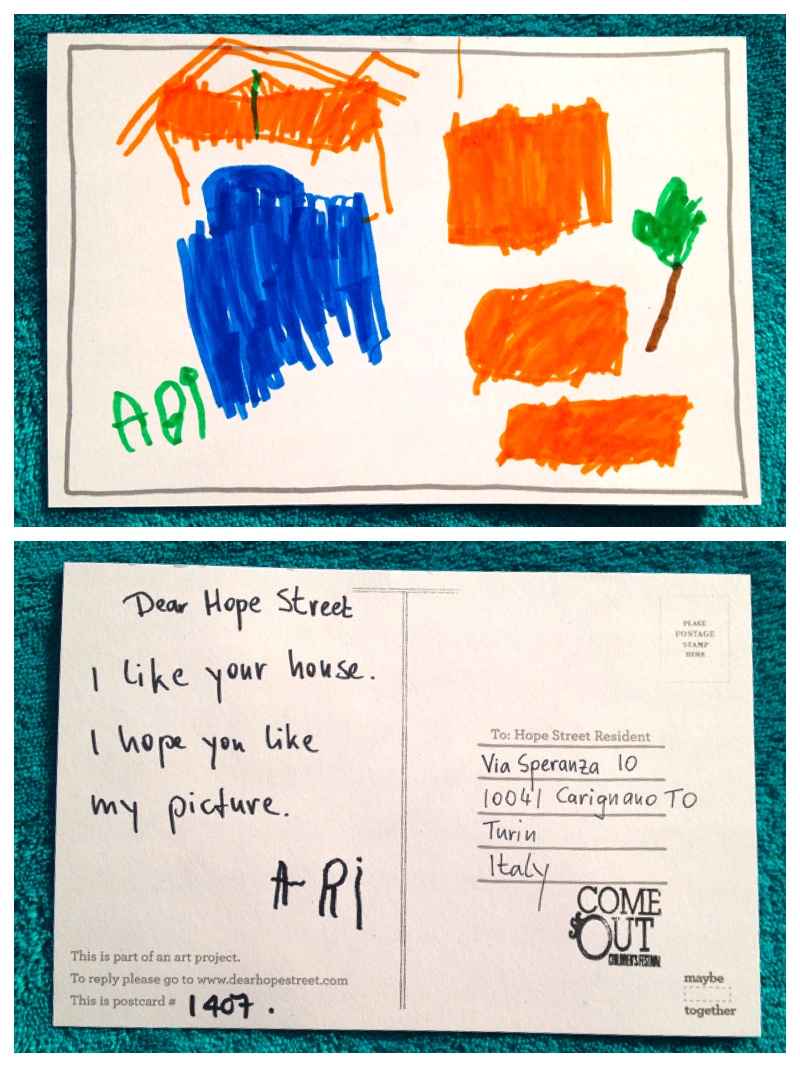 ARI
Dear Hope Street
I like your house.
I hope you like
my picture.
ARi
This is part of an art project.
To reply please go to www.dearhopestreet.com
This is postcard # 1407.
PLACE
POSTAGE
STAMP
HERE
To: Hope Street Resident
Via Speranza 10
10041 Carignano TO
Turin
Italy
COME
OUT
CHILDREN'S FESTIVAL
maybe
together